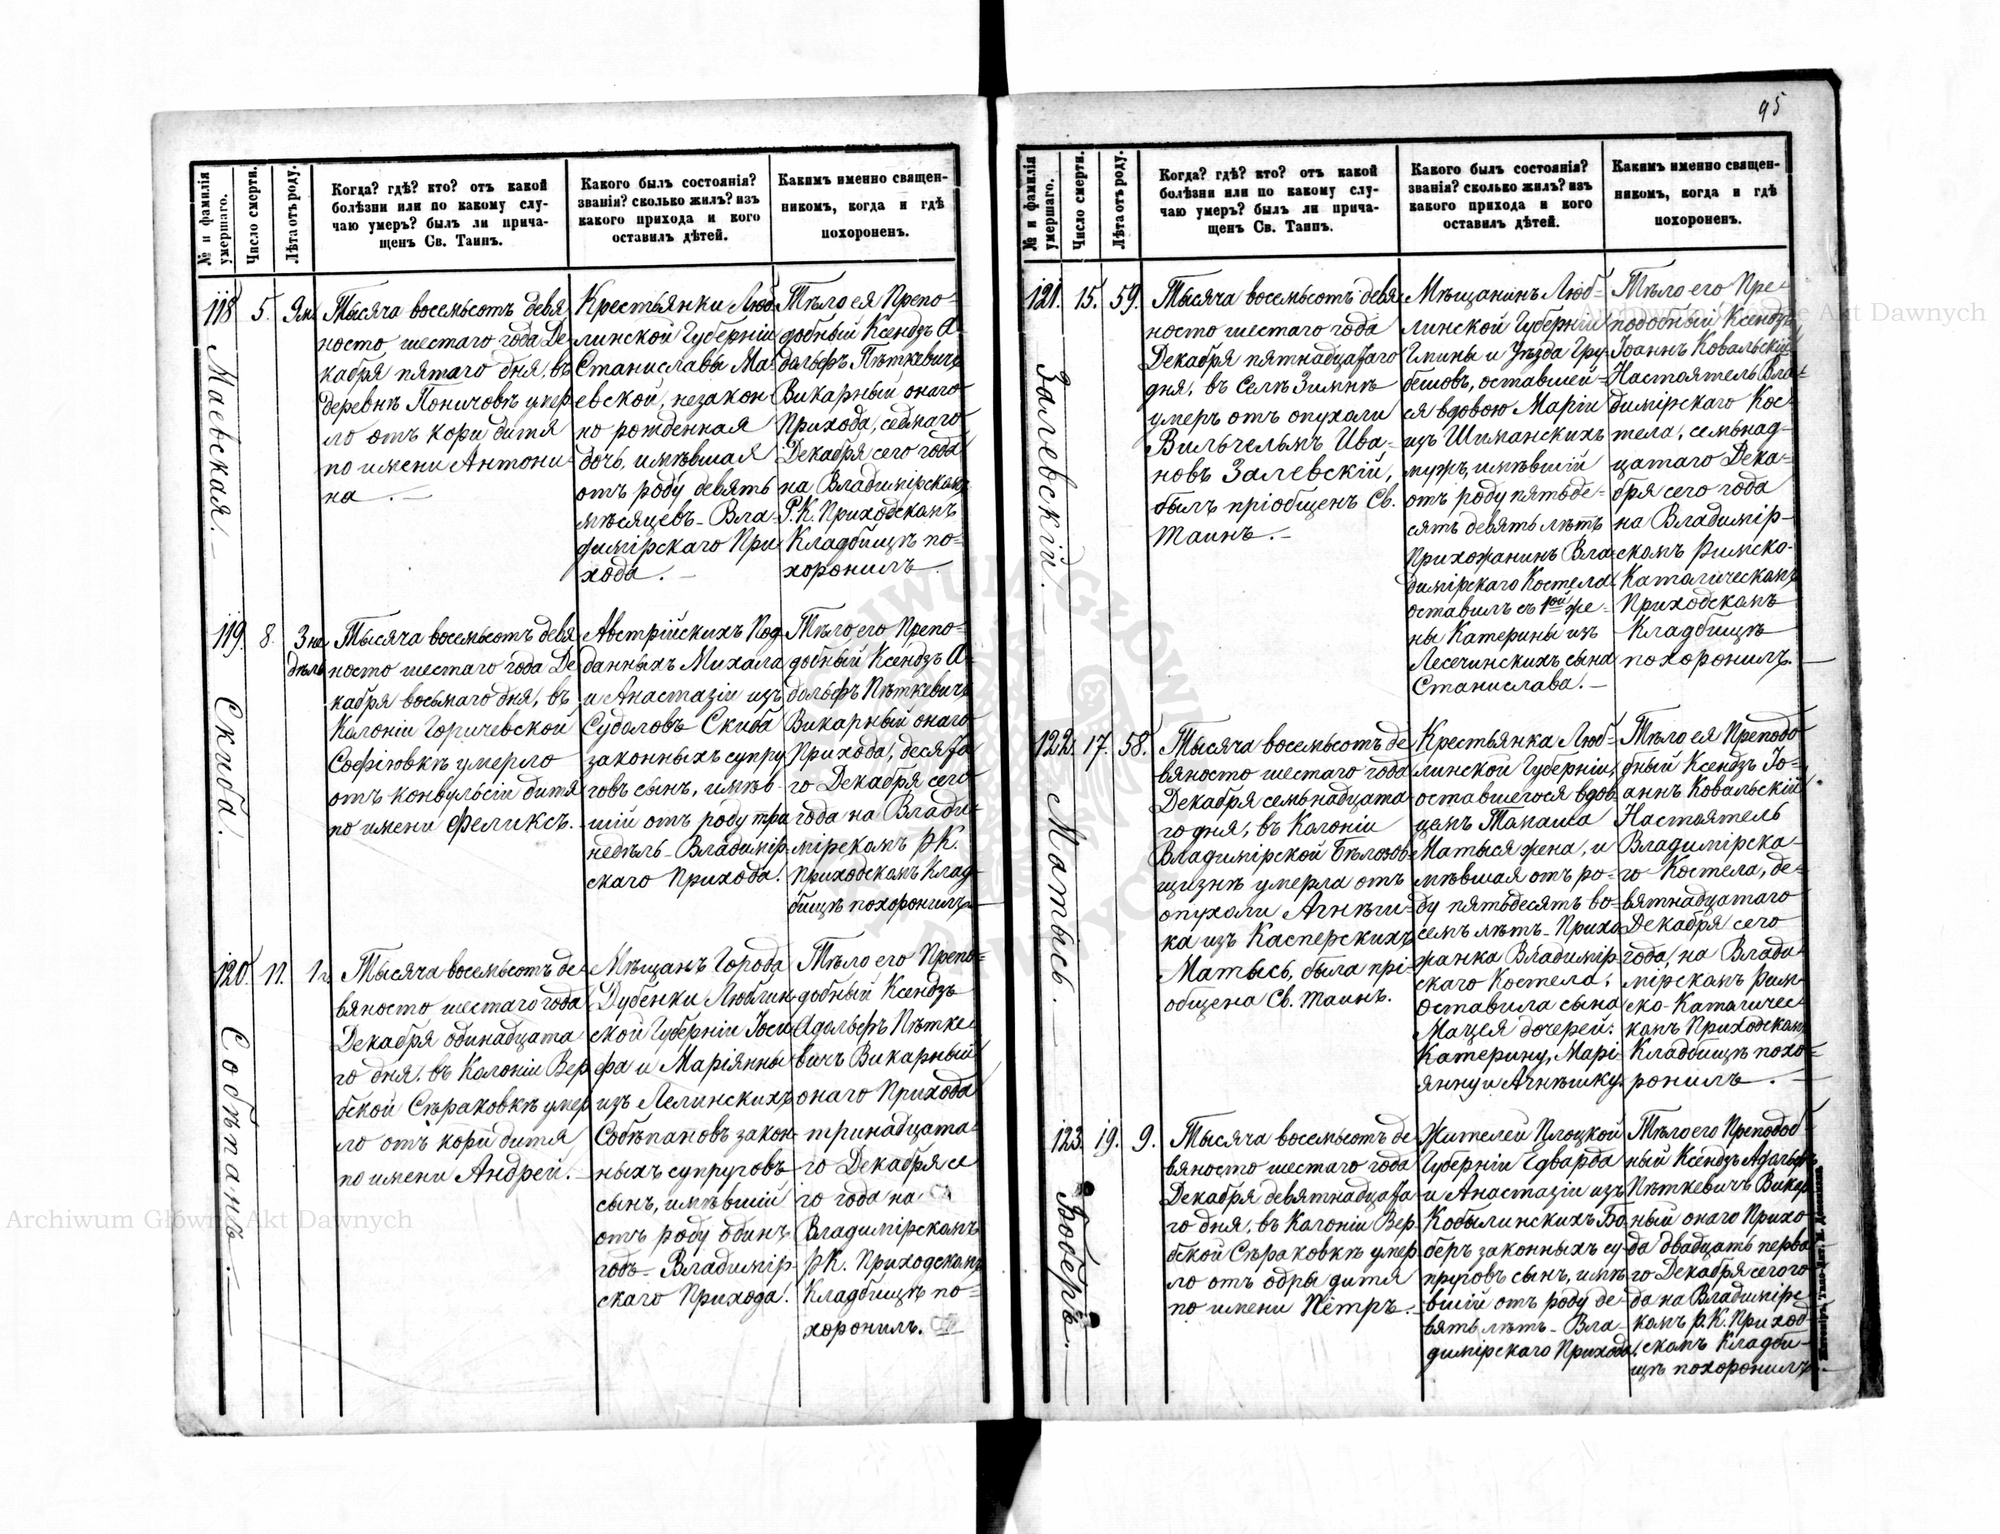 95
№ и фамилія умершаго.
Число смерти.
Лѣта отъ роду.
Когда? гдѣ? кто? отъ какой
болѣзни или по какому слу-
чаю умеръ? былъ ли прича-
щенъ Св. Таинъ.
Какого былъ состоянія?
званія? сколько жилъ? изъ
какого прихода и кого
оставилъ дѣтей.
Какимъ именно священ-
никомъ, когда и гдѣ
похороненъ.
118
Маевская.
5.
9 м.
Тысяча восемьсотъ девя
носто шестаго года Де
кабря пятаго дня, въ
деревнѣ Поничовѣ умер
ло отъ кори дитя
по имени Антони
на.
Крестьянки Люб
линской Губерніи
Станиславы Ма-
евской, незакон
но рожденная
дочь, имѣвшая
отъ роду девять
мѣсяцевъ - Вла-
димірскаго При
хода.
Тѣло ея Препо-
добный Ксендзъ А-
дольфъ Пѣткевичъ
Викарный онаго
Прихода, седмаго
Декабря сего года
на Владимірскомъ
Р.К. Приходскомъ
Кладбищѣ по-
хоронилъ
119.
Скиба.
8.
3 не
дѣль
Тысяча восемьсотъ девя
носто шестаго года Де
кабря восьмаго дня, въ
Колоніи Горичевской
Софіювкѣ умерло
отъ конвульсіи дитя
по имени Феликсъ.
Австрійскихъ Под
данныхъ Михала
и Анастазіи изъ
Судаловъ Скиба
законныхъ супру
говъ сынъ, имѣв-
шій отъ роду три
недѣль - Владимір-
скаго Прихода.
Тѣло его Препо-
добный Ксендзъ А-
дольфъ Пѣткевичъ
Викарный онаго
Прихода, десята
го Декабря сего
года на Влади-
мірскомъ Р.К.
Приходскомъ Клад-
бищѣ похоронилъ
120.
Собѣпанъ.
11.
1 г.
Тысяча восемьсотъ де-
вяносто шестаго года
Декабря одинадцата
го дня, въ Колоніи Вер
бской Сѣраковкѣ умер
ло отъ кори дитя
по имени Андрей.
Мѣщанъ Города
Дубенки Люблин
ской Губерніи Іоси
фа и Маріянны
изъ Лелинскихъ
Собѣпановъ закон-
ныхъ супруговъ
сынъ, имѣвшій
отъ роду одинъ
годъ - Владимір-
скаго Прихода.
Тѣло его Препо-
добный Ксендзъ
Адольфъ Пѣтке-
вичъ Викарный
онаго Прихода
тринадцата-
го Декабря се
го года на
Владимірскомъ
Р.К. Приходскомъ
Кладбищѣ по-
хоронилъ.
№ и фамилія умершаго.
Число смерти.
Лѣта отъ роду.
Когда? гдѣ? кто? отъ какой
болѣзни или по какому слу-
чаю умеръ? былъ ли прича-
щенъ Св. Таинъ.
Какого былъ состоянія?
званія? сколько жилъ? изъ
какого прихода и кого
оставилъ дѣтей.
Какимъ именно священ-
никомъ, когда и гдѣ
похороненъ.
121.
Залевскій.
15.
59.
Тысяча восемьсотъ девя
носто шестаго года
Декабря пятнадцатаго
дня, въ Селѣ Зимнѣ
умеръ отъ опухоли
Вильгельмъ Ива-
новъ Залевскій,
былъ пріобщенъ Св.
Таинъ.
Мѣщанинъ Люб-
линской Губерніи
Гмины и Уѣзда Гру
бешовъ, оставшей-
ся вдовою Маріи
изъ Шиманскихъ
мужъ, имѣвшій
отъ роду пятьде-
сять девять лѣтъ
Прихожанинъ Вла
димірскаго Костела
оставилъ съ 1ой же-
ны Катерины изъ
Лесечинскихъ сына
Станислава.
Тѣло его Пре-
подобный Ксендзъ
Іоаннъ Ковальскій
Настоятель Вла-
димірскаго Кос-
тела, семьнад-
цатаго Дека-
бря сего года
на Владимір-
скомъ Римско-
Католическомъ
Приходскомъ
Кладбищѣ
похоронилъ.
122.
Матысь.
17.
58.
Тысяча восемьсотъ де
вяносто шестаго года
Декабря семьнадцата
го дня, въ Колоніи
Владимірской Бѣлозов-
щизнѣ умерла отъ
опухоли Агнѣш-
ка изъ Касперскихъ
Матысь, была прі-
общена Св. Таинъ.
Крестьянка Люб-
линской Губерніи,
оставшегося вдов
цемъ Томаша
Матыся жена, и
мѣвшая отъ ро-
ду пятьдесятъ во-
семъ лѣтъ - Прихо
жанка Владимір
скаго Костела;
Оставила сына
Мацея дочерей:
Катерину, Марі-
янну и Агнѣшку.
Тѣло ея Преподо
бный Ксендзъ Іо-
аннъ Ковальскій
Настоятель
Владимірска-
го Костела, де-
вятнадцатаго
Декабря сего
года, на Влади-
мірскомъ Рим-
ско-Католичес-
комъ Приходскомъ
Кладбищѣ похо-
ронилъ.
123.
Боберъ.
19.
9.
Тысяча восемьсотъ де
вяносто шестаго года
Декабря девятнадцата
го дня, въ Колоніи Вер
бской Сѣраковкѣ умер
ло отъ одры дитя
по имени Пётръ.
Жителей Плоцкой
Губерніи Едварда
и Анастазіи изъ
Кобылинскихъ Бо
беръ законныхъ су-
пруговъ сынъ, имѣ
вшій отъ роду де-
вять лѣтъ - Вла-
димірскаго Прихода.
Тѣло его Преподоб
ный Ксендзъ Адольфъ
Пѣткевичъ Викар
ный онаго Прихо-
да двадцать перва
го Декабря сего го
да на Владимірс
комъ Р.К. Приход-
скомъ Кладби-
щѣ похоронилъ
Archiwum Główne Akt Dawnych
Archiwum Główne Akt Dawnych